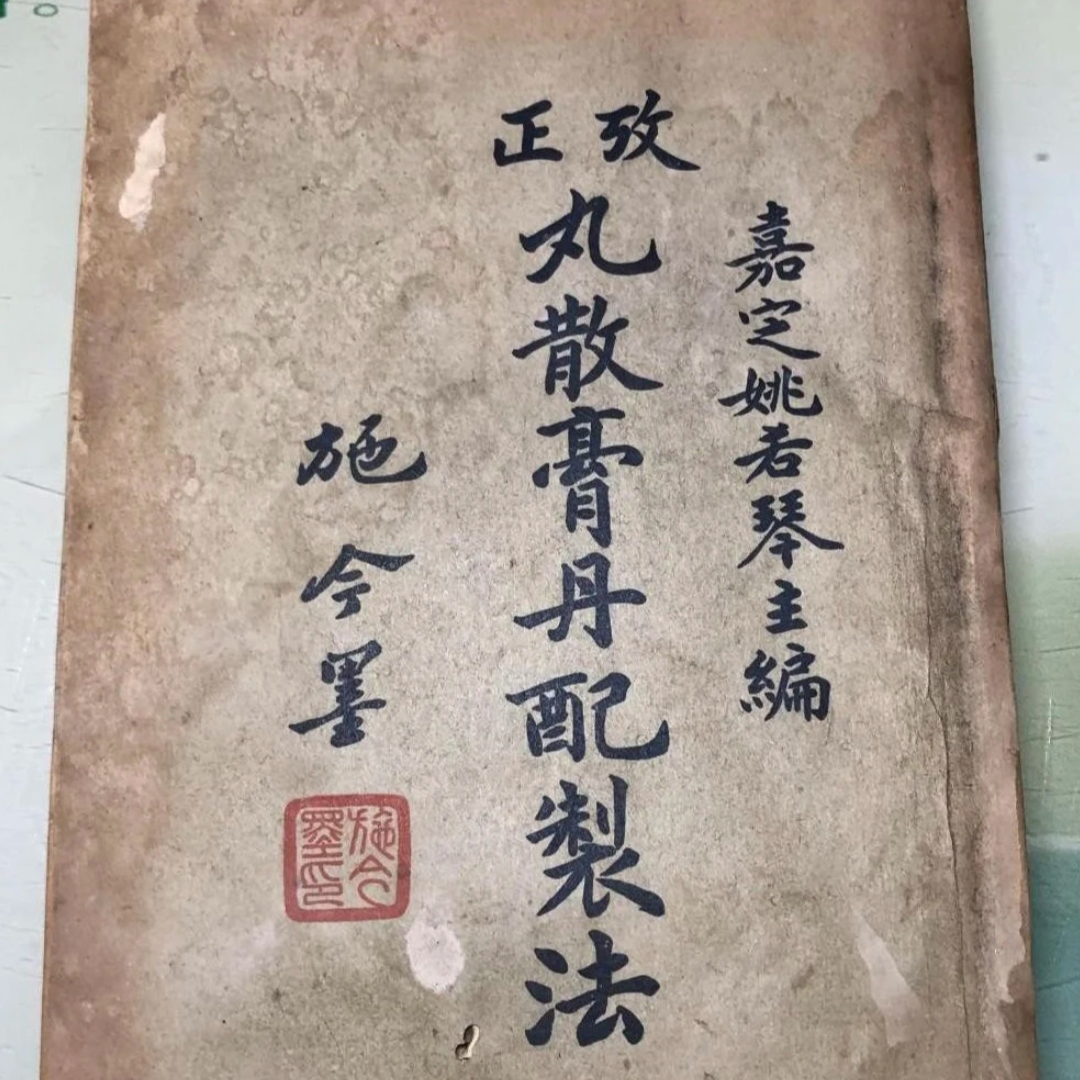 嘉定姚若琴主編
攷正
丸散膏丹配製法
施今墨
施今墨印